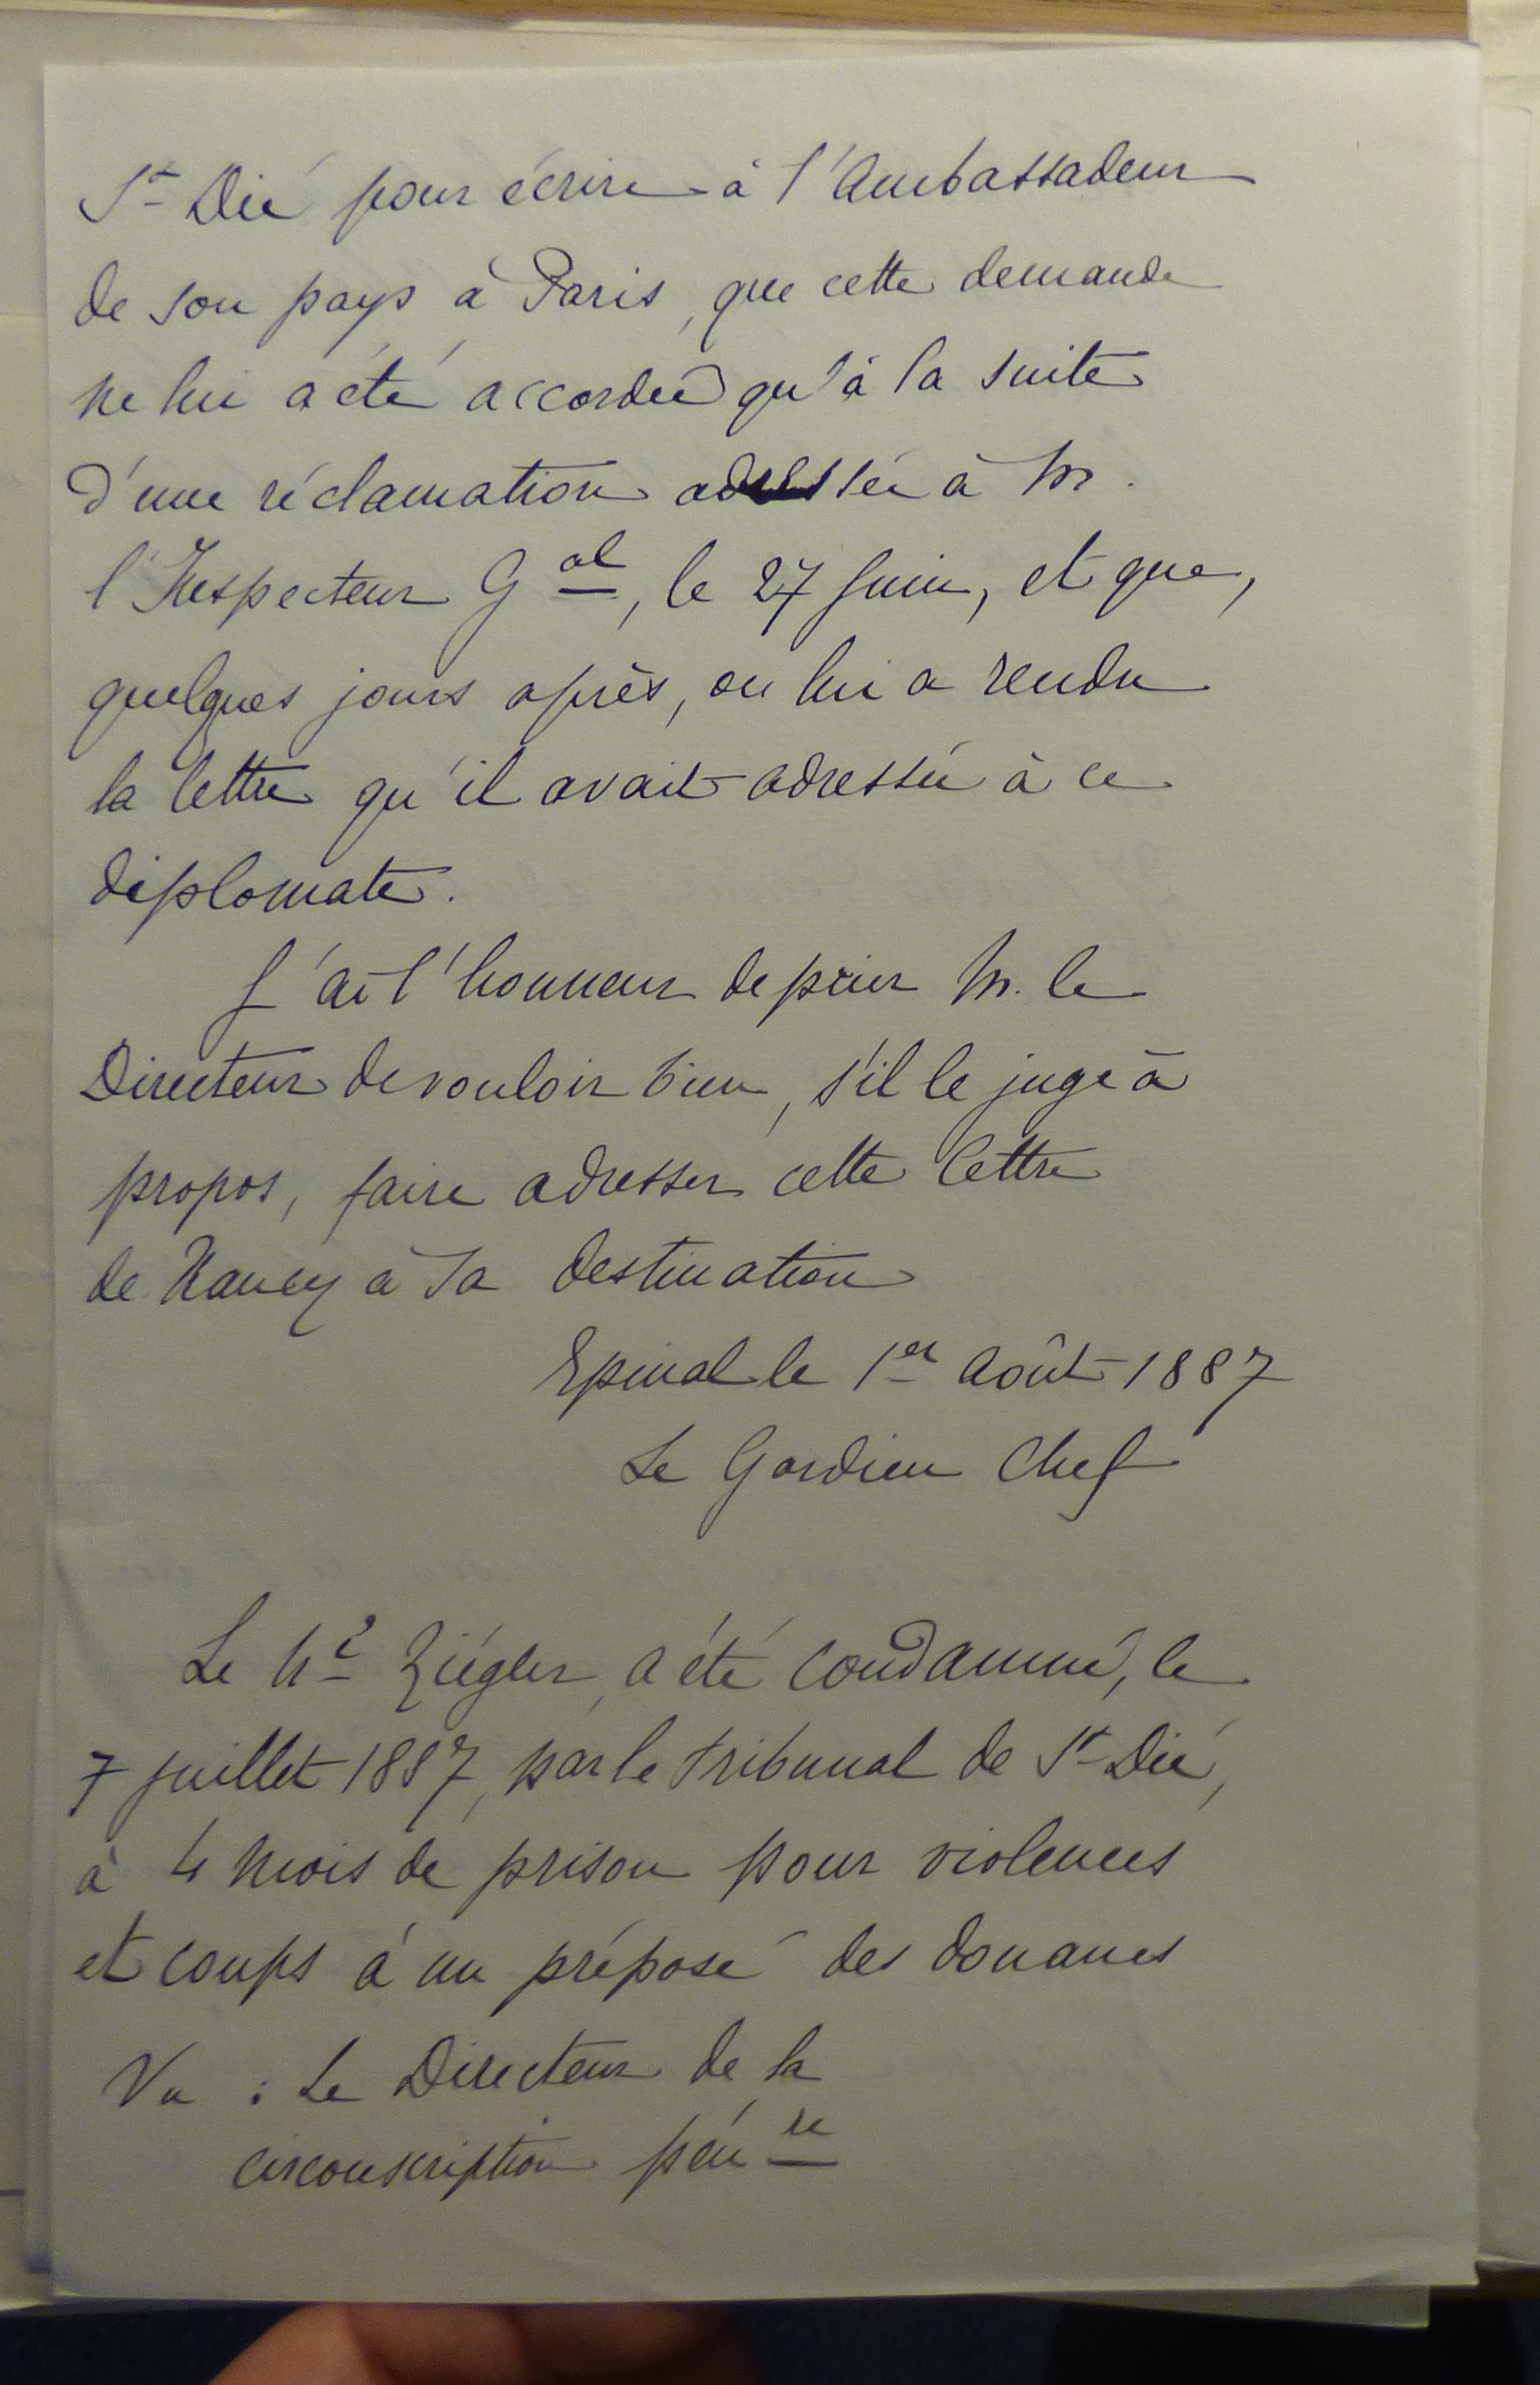 St Dié pour écrire à l'Ambassadeur
de son pays à Paris, que cette demande
ne lui a été accordée qu'à la suite
d'une réclamation adressée à M.
l'Inspecteur Gal, le 27 Juin, et que,
quelques jours après, on lui a rendu
la lettre qu'il avait adressée à ce
diplomate.
J'ai l'honneur de prier M. le
Directeur de vouloir bien, s'il le juge à
propos, faire adresser cette lettre
de Nancy à sa destination
Epinal le 1er Août 1887
Le Gardien Chef
Le né Ziégler, a été condamné, le
7 Juillet 1887, par le tribunal de St Dié,
à 4 mois de prison pour violences
et coups à un préposé des douanes
Vu : Le Directeur de la
circonscription pénre